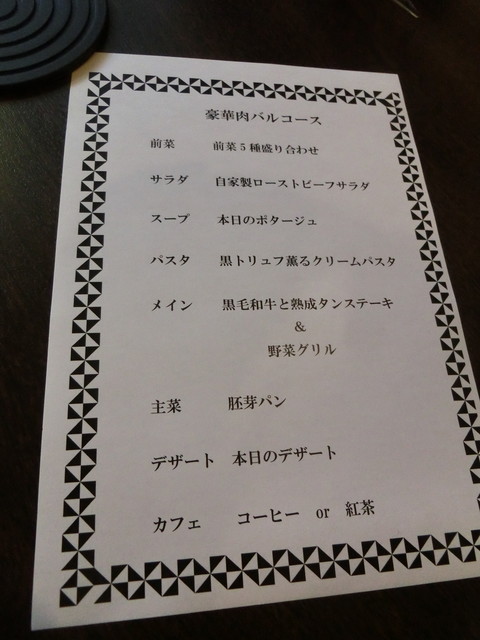 豪華肉バルコース
前菜 前菜5種盛り合わせ
サラダ 自家製ローストビーフサラダ
スープ 本日のポタージュ
パスタ 黒トリュフ薫るクリームパスタ
メイン 黒毛和牛と熟成タンステーキ
&
野菜グリル
主菜 胚芽パン
デザート 本日のデザート
カフェ コーヒー or 紅茶